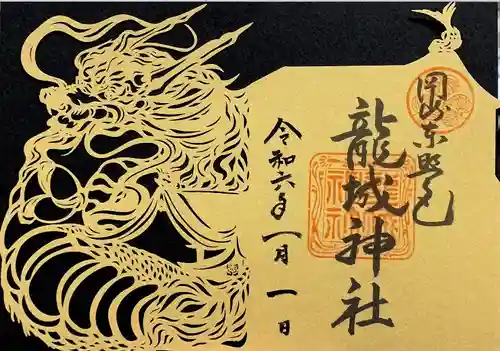 岡崎東照宮
龍城神社
令和六年一月一日